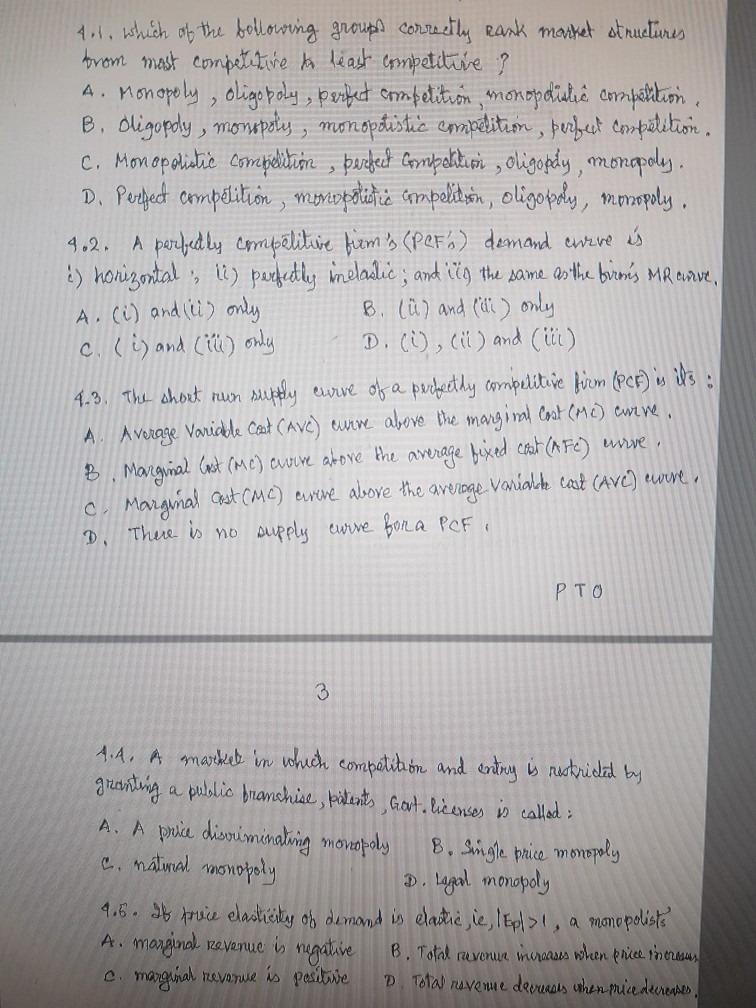 4.1. Which of the following groups correctly rank market structures
from most competitive to least competitive ?
A. Monopoly, oligopoly, perfect competition, monopolistic competition.
B. Oligopoly, monopoly, monopolistic competition, perfect competition.
C. Monopolistic competition, perfect competition, oligopoly, monopoly.
D. Perfect competition, monopolistic competition, oligopoly, monopoly.
4.2. A perfectly competitive firm's (PCF's) demand curve is
i) horizontal ; ii) perfectly inelastic ; and iii) the same as the firm's MR curve.
A. (i) and (ii) only B. (ii) and (iii) only
C. (i) and (iii) only D. (i), (ii) and (iii)
4.3. The short run supply curve of a perfectly competitive firm (PCF) is its :
A. Average Variable Cost (AVC) curve above the marginal cost (MC) curve.
B. Marginal Cost (MC) curve above the average fixed cost (AFC) curve.
C. Marginal Cost (MC) curve above the average variable cost (AVC) curve.
D. There is no supply curve for a PCF.
PTO
3
4.4. A market in which competition and entry is restricted by
granting a public franchise, patents, Govt. licenses is called :
A. A price discriminating monopoly B. Single price monopoly
C. natural monopoly D. Legal monopoly
4.5. If price elasticity of demand is elastic, ie, |Ep|>1, a monopolist's
A. marginal revenue is negative B. Total revenue increases when price increases
C. marginal revenue is positive D. Total revenue decreases when price decreases.